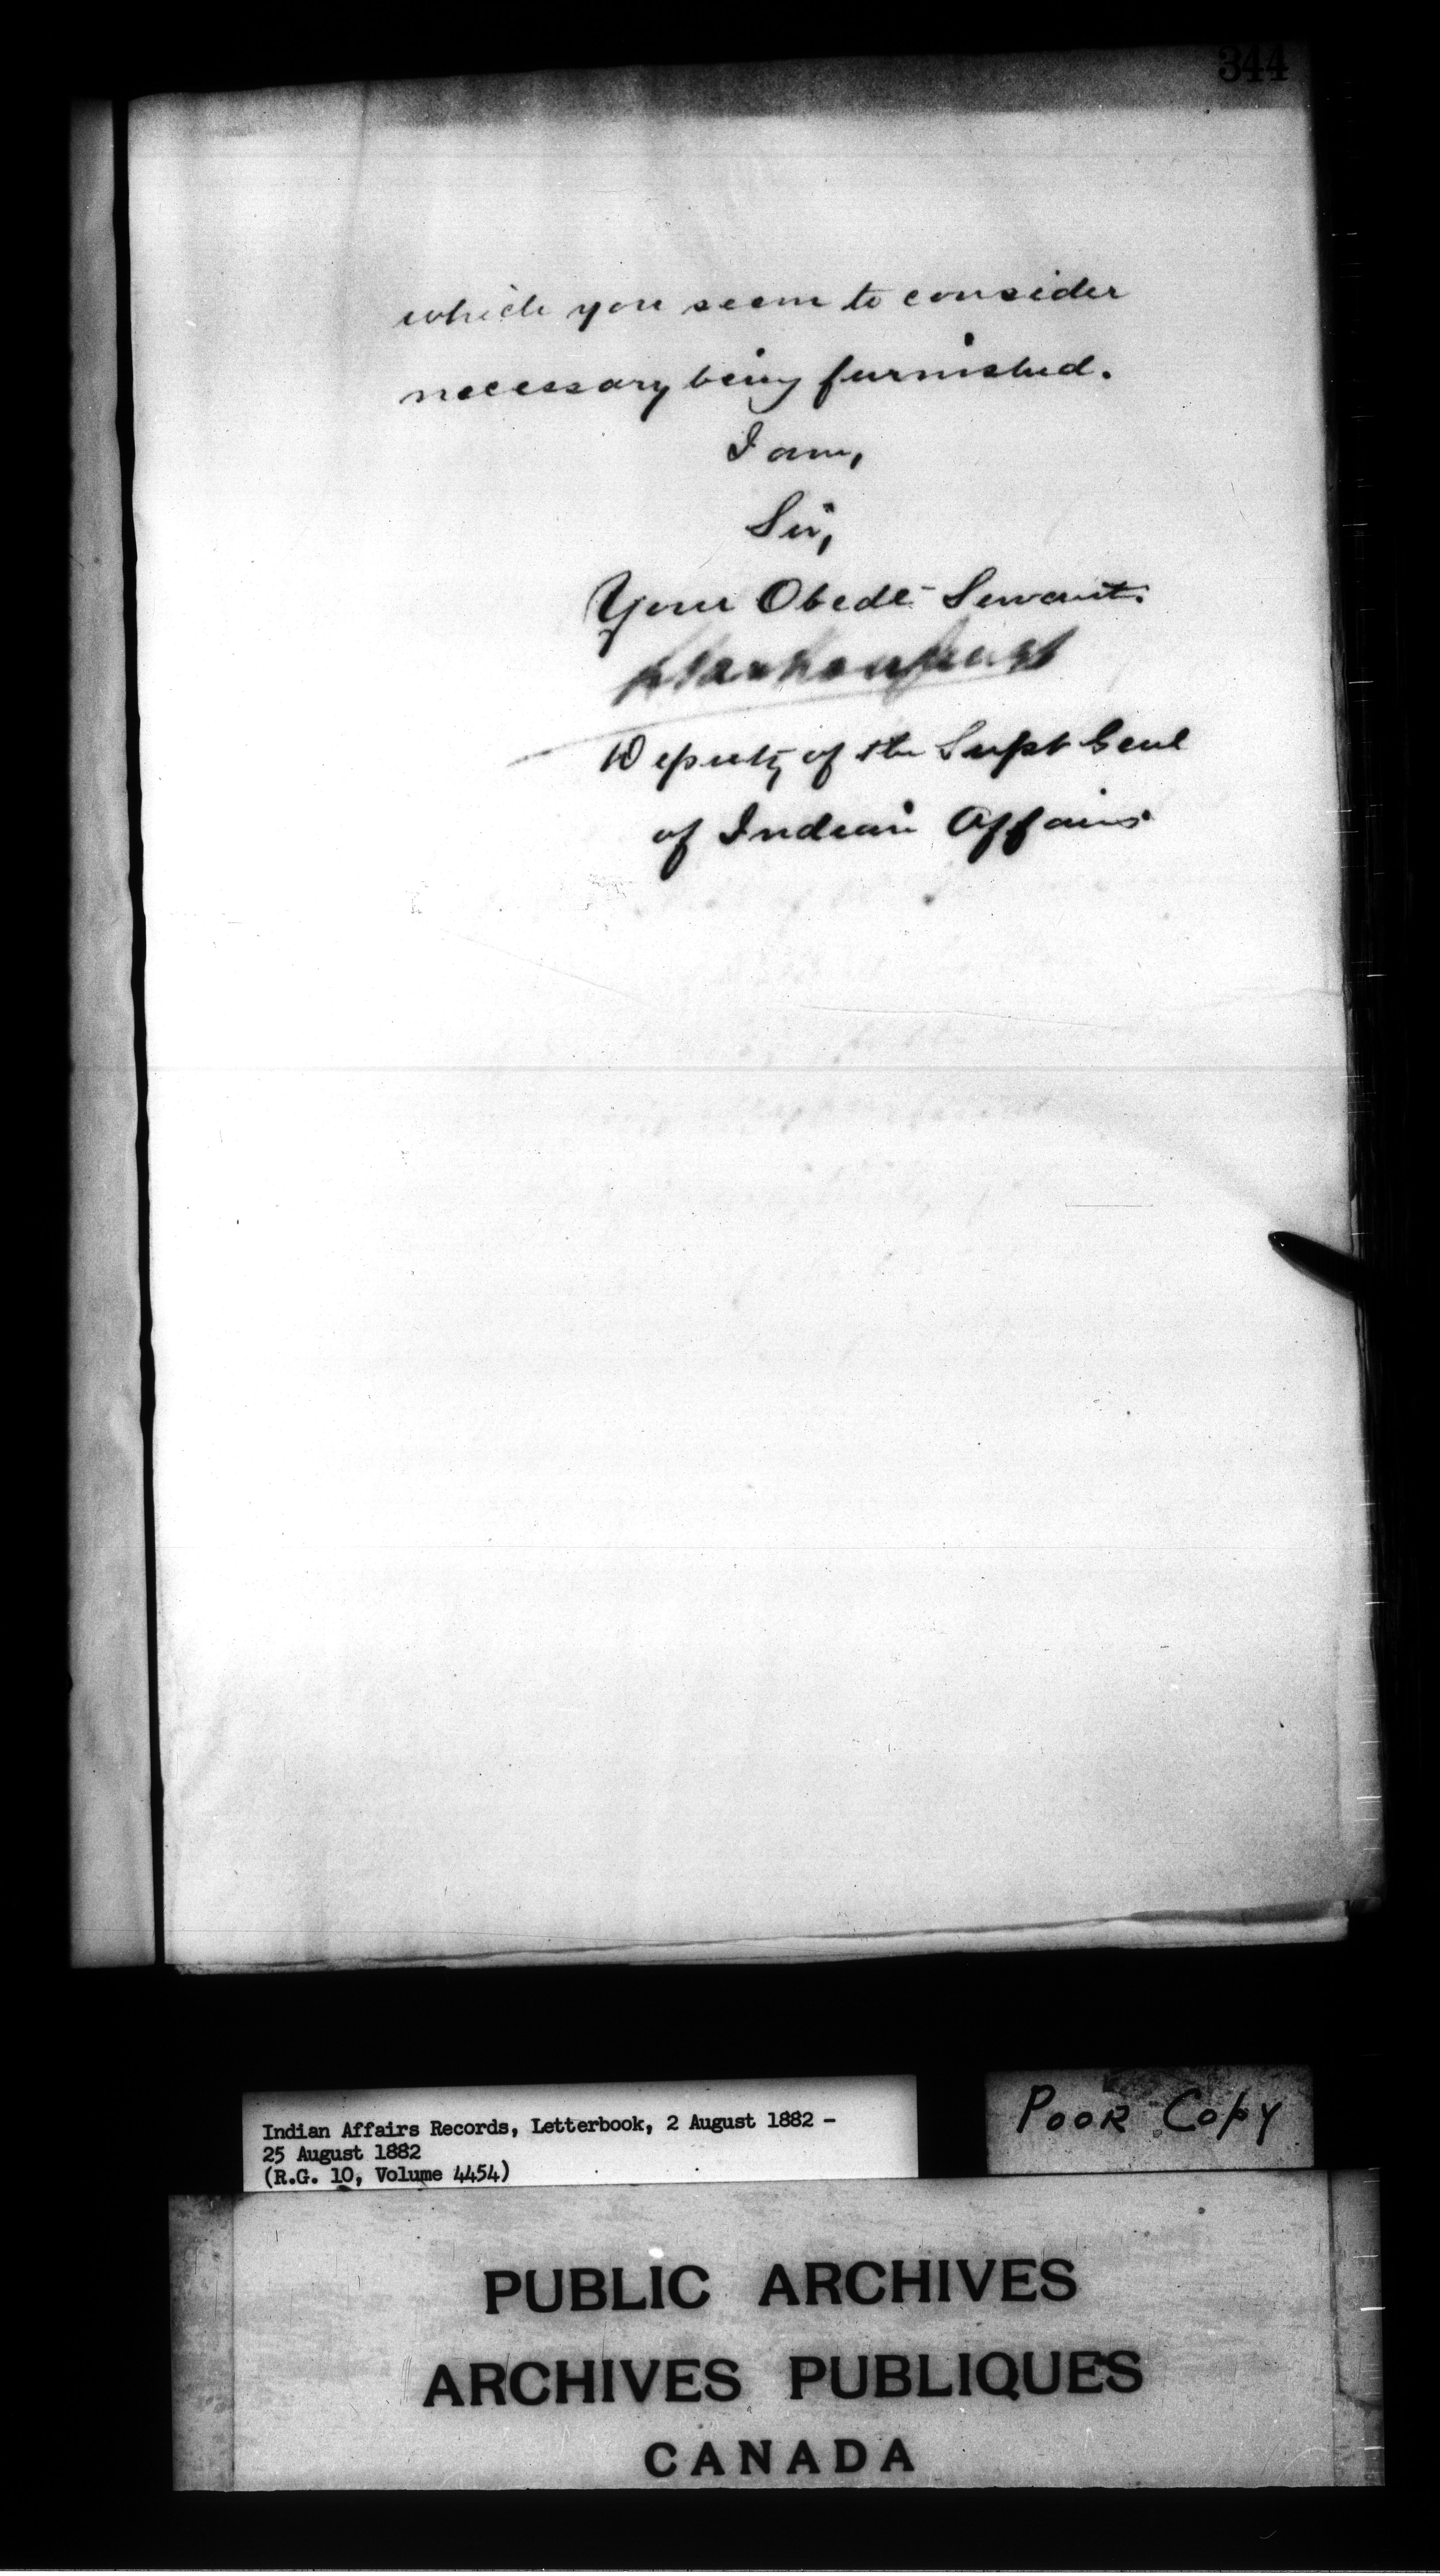 344
which you seem to consider
necessary being furnished.
I am,
Sir,
Your Obedt Servant.
Deputy of the Supt Genl
of Indian Affairs
Indian Affairs Records, Letterbook, 2 August 1882 -
25 August 1882
(R.G. 10, Volume 4454)
POOR COPY
PUBLIC ARCHIVES
ARCHIVES PUBLIQUES
CANADA